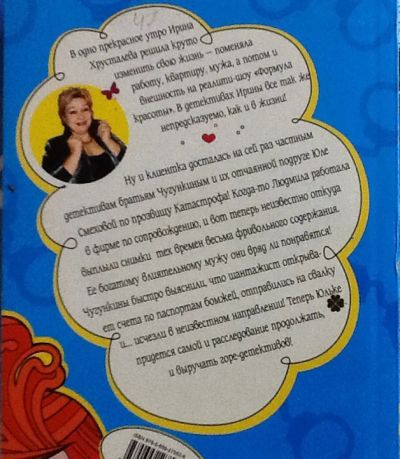 45
В одно прекрасное утро Ирина
Хрусталева решила круто
изменить свою жизнь — поменяла
работу, квартиру, мужа, а потом и
внешность на реалити-шоу «Формула
красоты». В детективах Ирины все так же
непредсказуемо, как и в жизни!
Ну и клиентка досталась на сей раз частным
детективам братьям Чугункиным и их отчаянной подруге Юле
Смеховой по прозвищу Катастрофа! Когда-то Людмила работала
в фирме по сопровождению, и вот теперь неизвестно откуда
выплыли снимки тех времен весьма фривольного содержания.
Ее богатому влиятельному мужу они вряд ли понравятся!
Чугункины быстро выяснили, что шантажист открыва-
ет счета по паспортам бомжей, отправились на свалку
и... исчезли в неизвестном направлении! Теперь Юльке
придется самой и расследование продолжать,
и выручать горе-детективов!
ISBN 978-5-699-